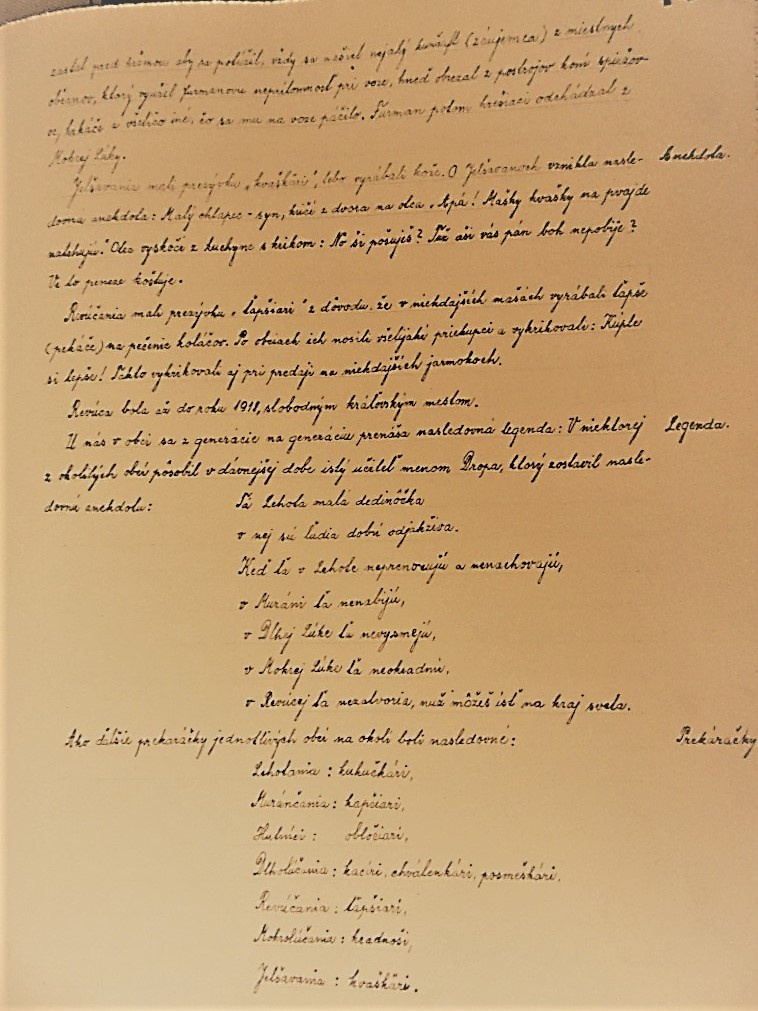 zastal pred krčmou aby sa posilnil, vždy sa našiel nejaký kunčaft (záujemca) z miestnych
občanov, ktorý využil furmanovu neprítomnosť pri voze, hneď obrezal z postrojov koní spižov-
ce, trkáče a všeličo iné, čo sa mu na voze páčilo. Furman potom hrešiaci odchádzal z
Mokrej Lúky.
Jelšavania mali prezývku „kvaškári“, lebo vyrábali kože. O Jelšavanoch vznikla nasle- Anekdota.
dovná anekdota: Malý chlapec - syn, kričí z dvora na otca „Apá! Mašky kvašky na pvajde
Otec vyskočí z kuchyne s krikom: No ši pošuješ? Túž aši vás pán boh nepobije?
Ve to peneze koštuje.
Revúčania mali prezývku „ťapšiari“ z dôvodu, že v niekdajších mašách vyrábali ťapše
(pekáče) na pečenie koláčov. Po obciach ich nosili všelijakí priekupci a vykrikovali: Kúpte
si ťepše! Takto vykrikovali aj pri predaji na niekdajších jarmokoch.
Revúca bola až do roku 1918, slobodným kráľovským mestom.
U nás v obci sa z generácie na generáciu prenáša nasledovná legenda: V niektorej Legenda.
z okolitých obcí pôsobil v dávnejšej dobe istý učiteľ menom Dropa, ktorý zostavil nasle-
dovnú anekdotu: Tá Lehota malá dedinôčka
v nej sú ľudia dobrí odjakživa.
Keď ťa v Lehote neprenocujú a nenachovajú,
v Muráni ťa nenabijú,
v Dlhej Lúke ťa nevysmejú,
v Mokrej Lúke ťa neokradnú,
v Revúcej ťa nezatvoria, nuž môžeš ísť na kraj sveta.
Ako ďalšie prekáračky jednotlivých obcí na okolí boli nasledovné: Prekáračky
Lehoťania: kukučkári,
Muránčania: kapčiari,
Hutníci: obločiari,
Dlholúčania: kacíri, chválenkári, posmeškári,
Revúčania: ťapšiari,
Mokrolúčania: kradnoši,
Jelšavania: kvaškári.